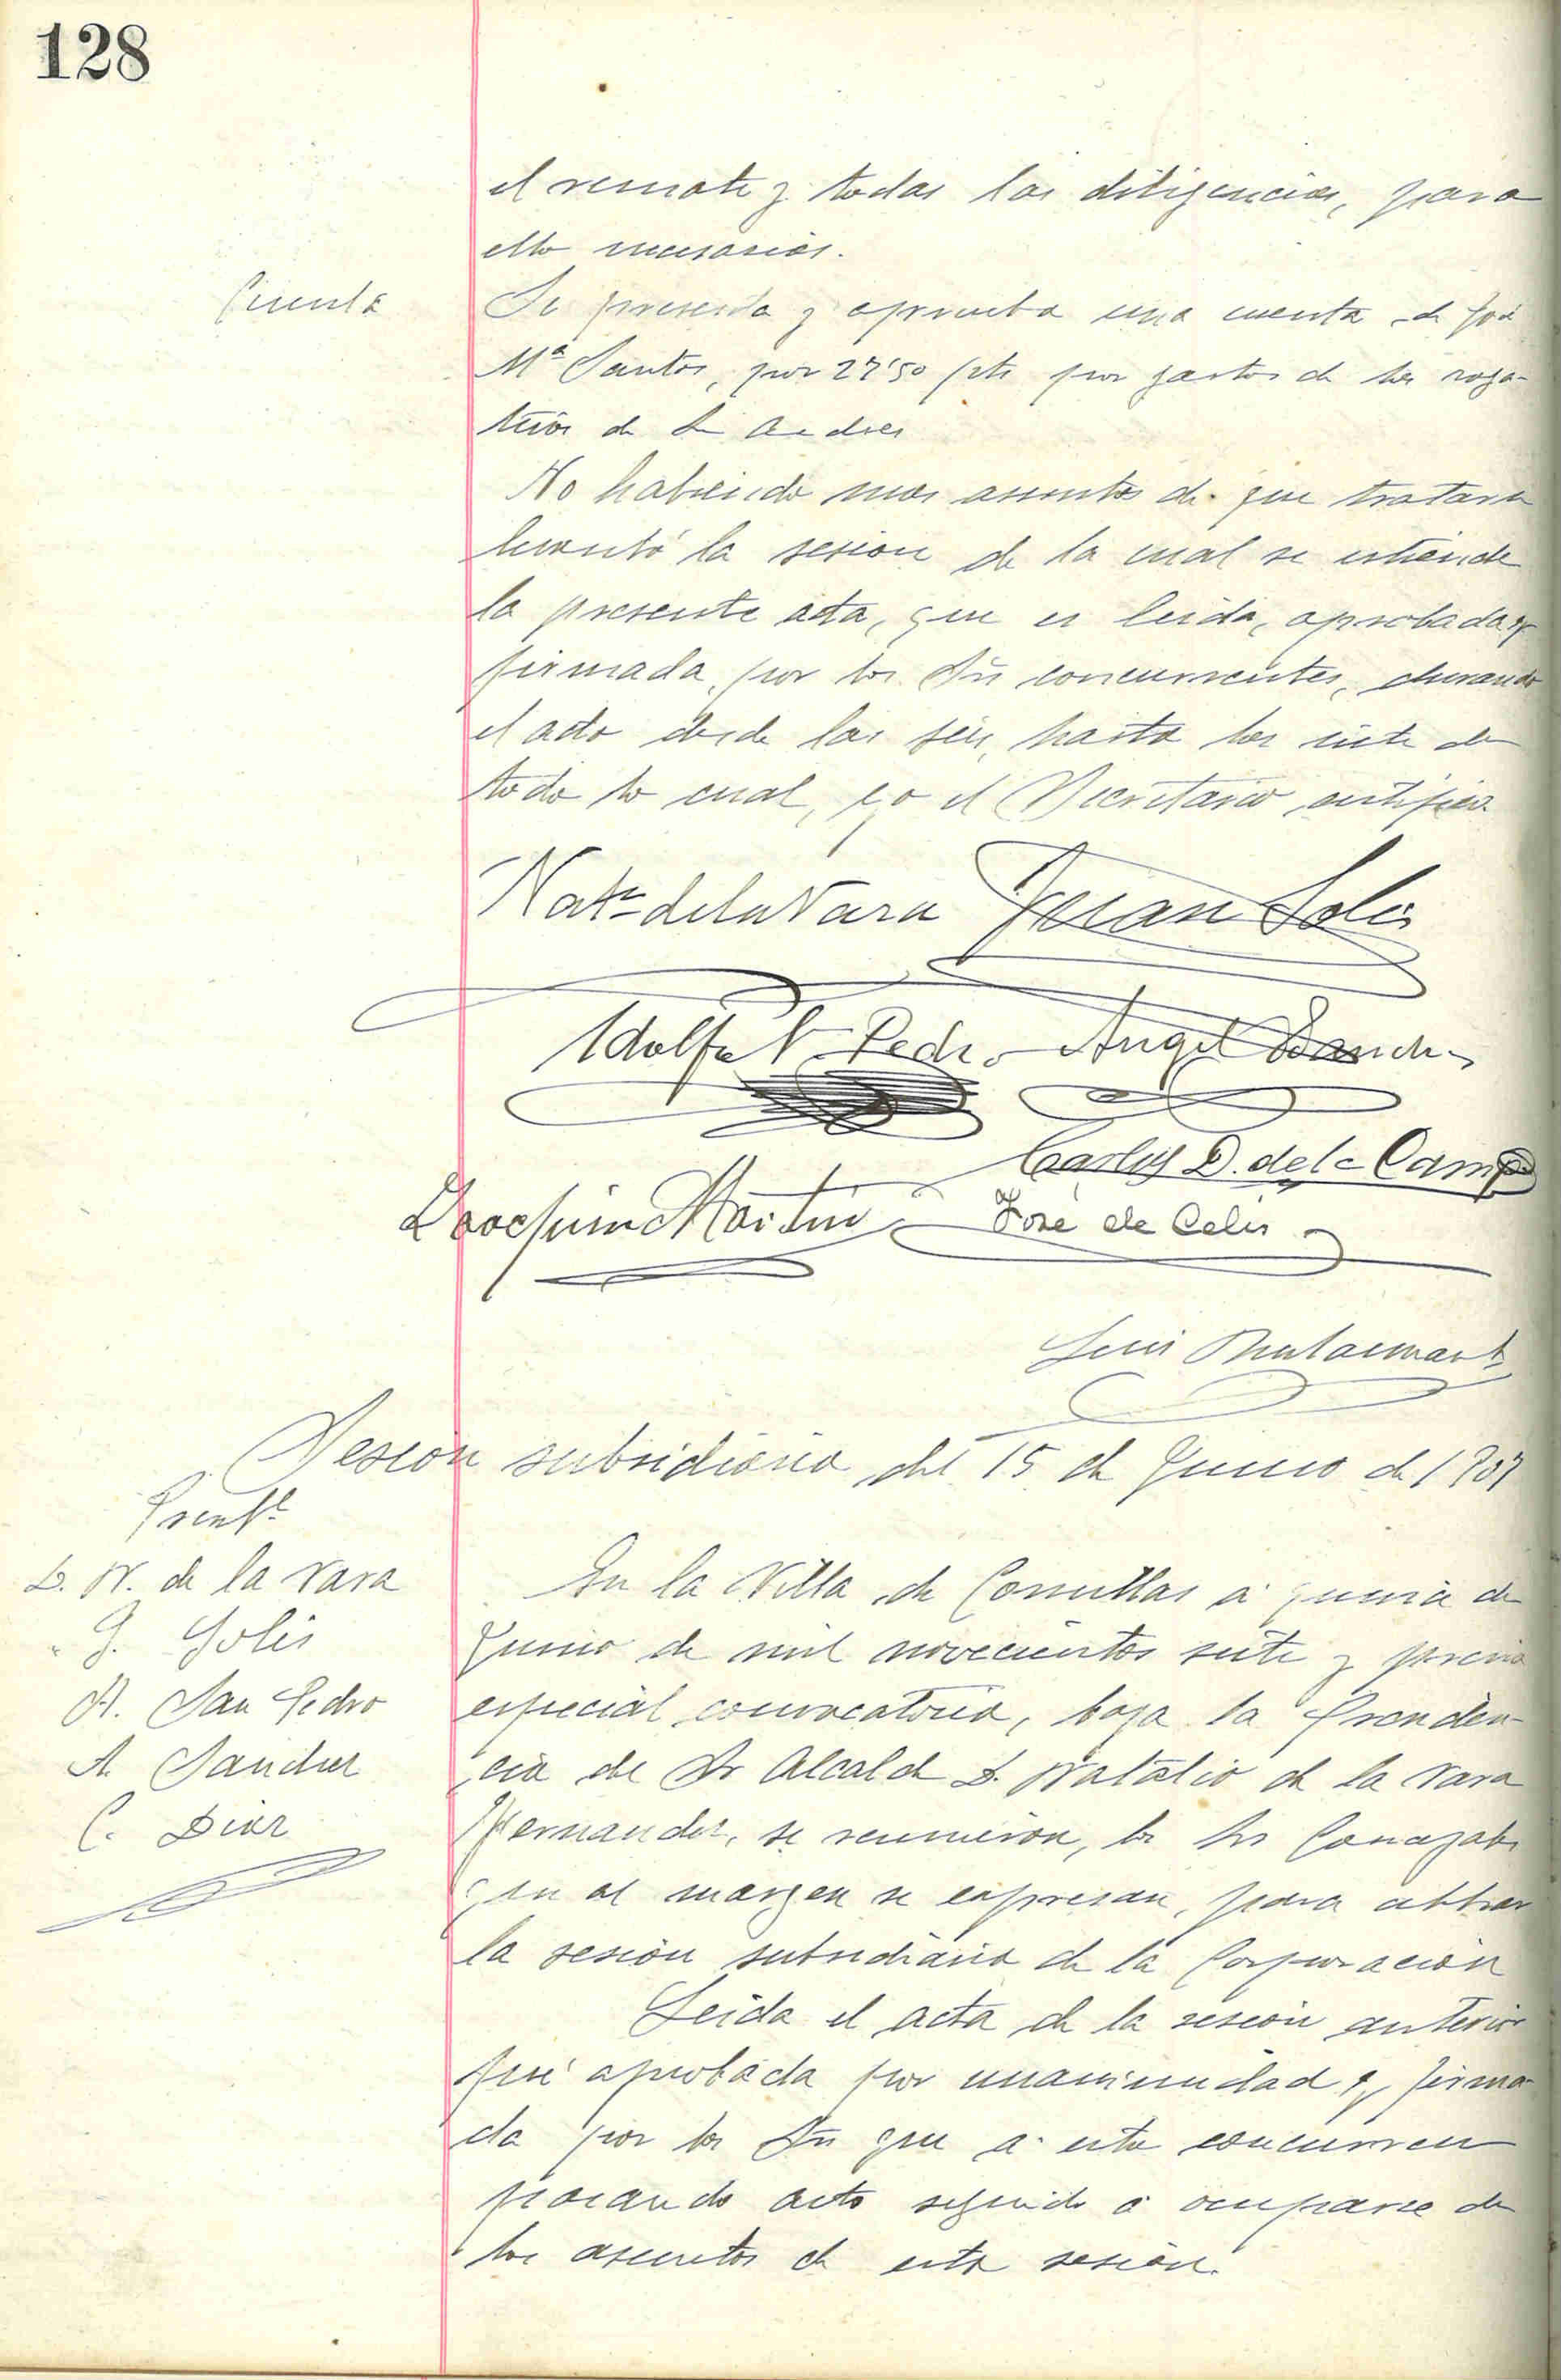 128
el remate y todas las diligencias, para
ello necesarias.
Cuenta
Se presenta y aprueba una cuenta de José
Mª Santos, por 27'50 pts por gastos de las roga-
tivas de Sn Andres
No habiendo mas asuntos de que tratar se
levantó la sesion de la cual se estiende
la presente acta, que es leida, aprobada y
firmada, por los Srs concurrentes, durando
el acto desde las seis, hasta las siete de
todo lo cual, yo el Secretario certifico
Nato de la Vara Juan Solis
Adolfo S. Pedro Angel Sanchez
Carlos D. de la Campa
Joachim Martin José de Celis
Luis
Sesion subsidiaria del 15 de Junio de 1907
Presdte
D. N. de la Vara
" J. Solis
A. San Pedro
A Sanchez
C. Diaz
En la Villa de Comillas a quince de
Junio de mil novecientos siete y previa
especial convocatoria, bajo la Presiden-
cia del Sr Alcalde D. Natalio de la Vara
Hernandez, se reunieron, los Srs Concejales
que al margen se expresan, para celebrar
la sesión subsidiaria de la Corporación
Leida el acta de la sesión anterior
fué aprobada por unanimidad y firma-
da por los Srs que a esta concurren
pasando acto seguido a ocuparse de
los asuntos de esta sesión.